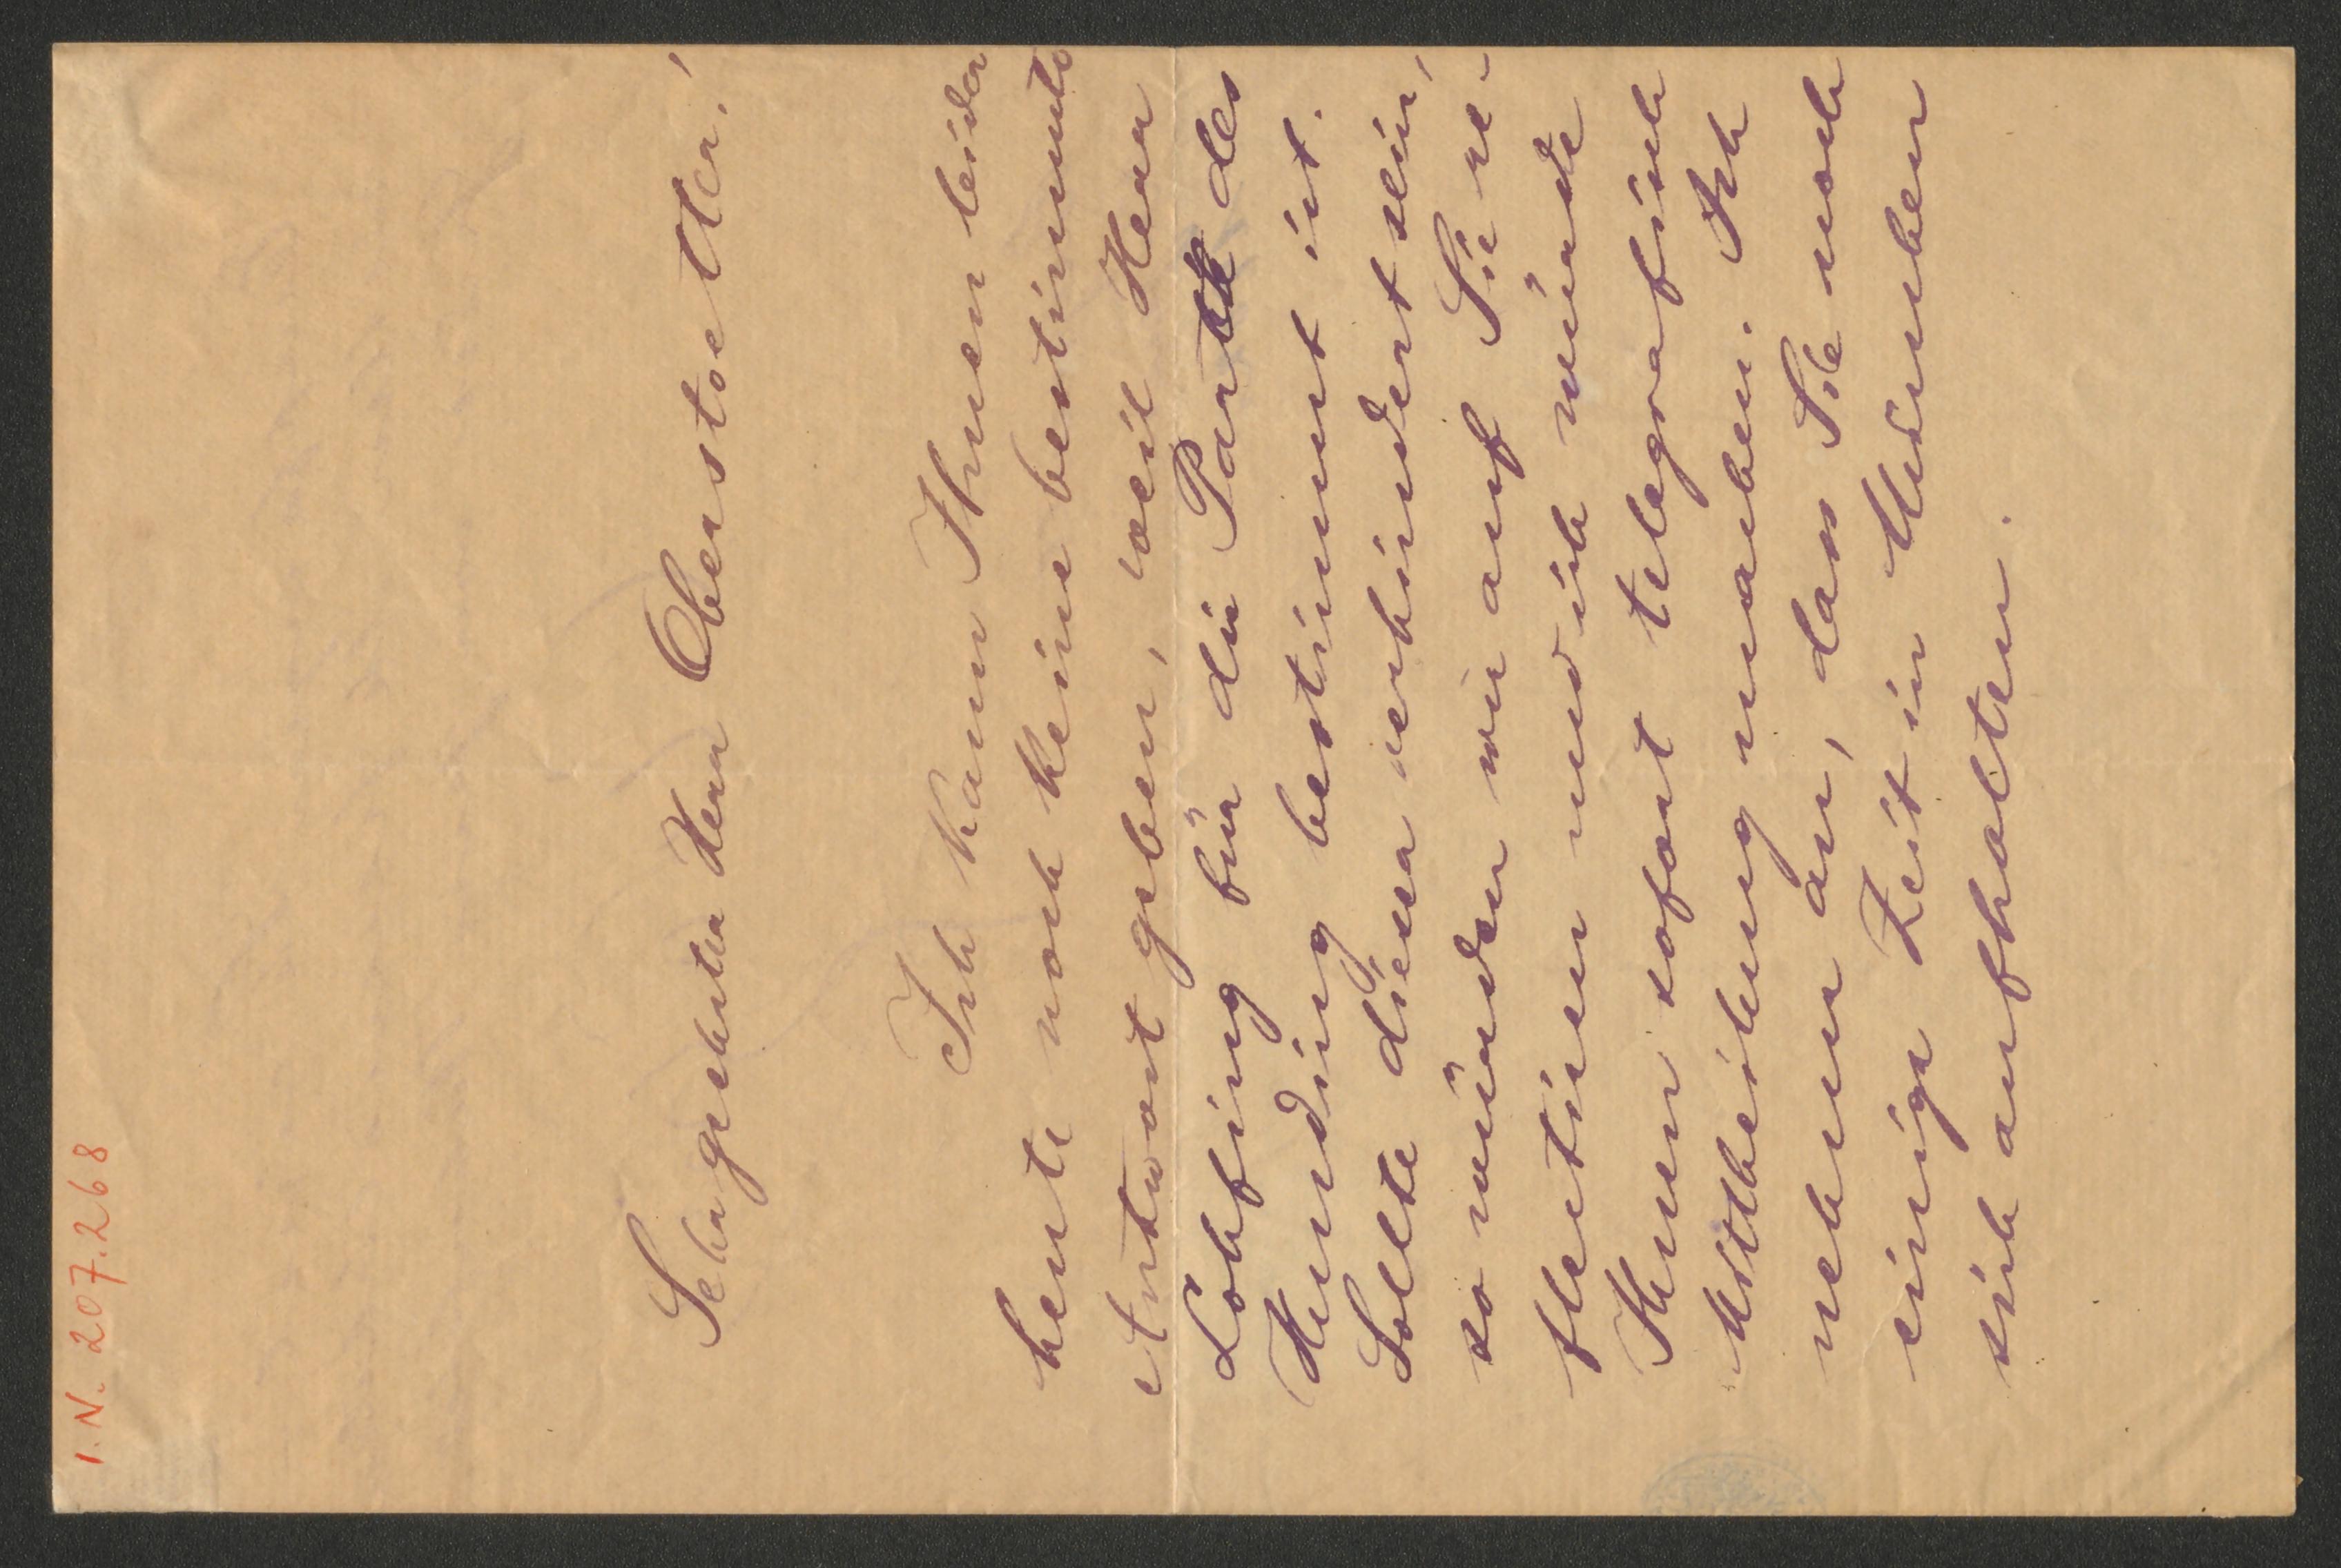 I.N. 207.268
Sehr geehrter Herr Oberstoetter!
Ich kann Ihnen leider
heute noch keine bestimmte
Antwort geben, weil Herr
Lohfing für die Partie des
Hunding bestimmt ist.
Sollte dieser verhindert sein,
so würden wir auf Sie re-
flectieren und ich würde
Ihnen sofort telegrafisch
Mittheilung machen. Ich
nehme an, dass Sie noch
einige Zeit in München
sich aufhalten.